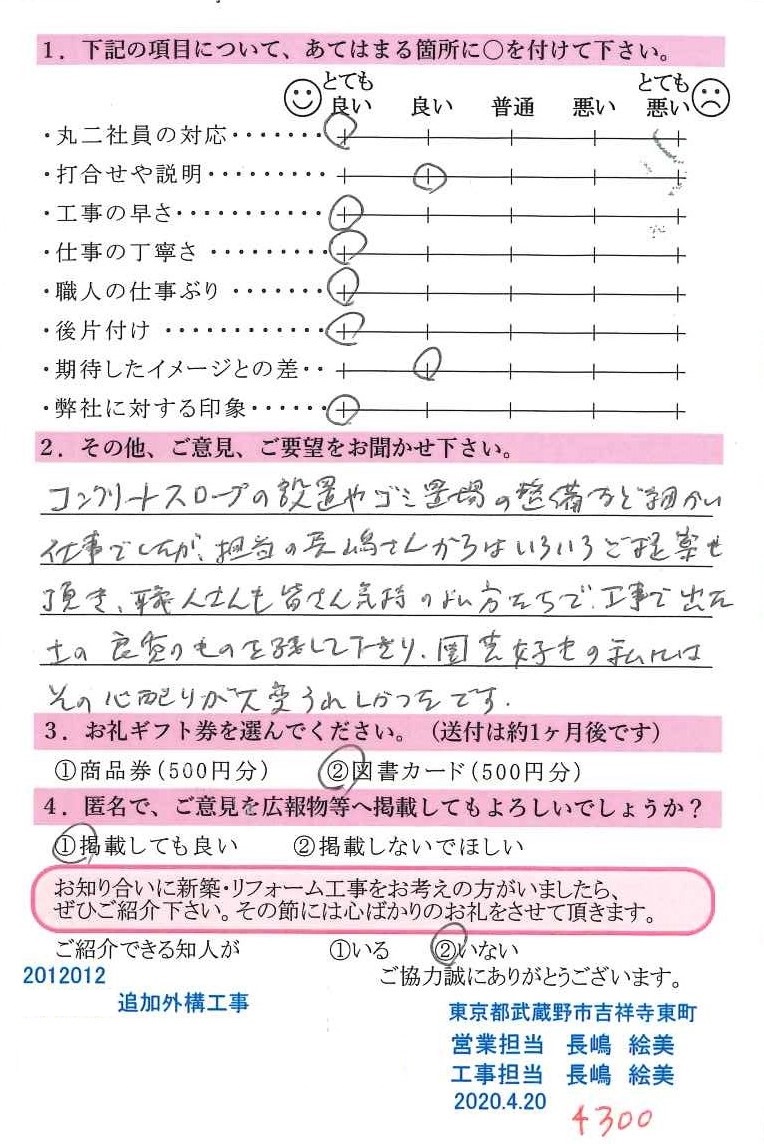 1．下記の項目について、あてはまる箇所に○を付けて下さい。
とても良い 良い 普通 悪い とても悪い
・丸二社員の対応・・・・・・・
・打合せや説明・・・・・・・・・
・工事の早さ・・・・・・・・・・・
・仕事の丁寧さ・・・・・・・・・
・職人の仕事ぶり・・・・・・・
・後片付け・・・・・・・・・・・・
・期待したイメージとの差・・
・弊社に対する印象・・・・・・
2．その他、ご意見、ご要望をお聞かせ下さい。
コンクリートスロープの設置やゴミ置場の整備など細かい
仕事でしたが、担当の長嶋さんからはいろいろご提案を
頂き、職人さんも皆さん気持のよい方たちで、工事で出た
土の良質のものを残して下さり、園芸好きの私には
その心配りが大変うれしかったです。
3．お礼ギフト券を選んでください。（送付は約1ヶ月後です）
①商品券(500円分) ②図書カード(500円分)
4．匿名で、ご意見を広報物等へ掲載してもよろしいでしょうか？
①掲載しても良い ②掲載しないでほしい
お知り合いに新築・リフォーム工事をお考えの方がいましたら、
ぜひご紹介下さい。その節には心ばかりのお礼をさせて頂きます。
ご紹介できる知人が ①いる ②いない
ご協力誠にありがとうございます。
2012012
追加外構工事
東京都武蔵野市吉祥寺東町
営業担当 長嶋 絵美
工事担当 長嶋 絵美
2020.4.20
4300